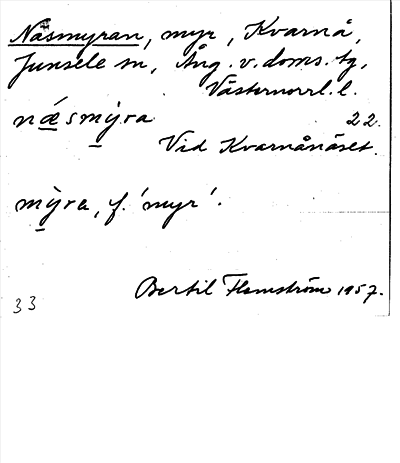 Näsmyran, myr, Kvarnå,
Junsele sn, Ång. v. doms. tg,
Västernorrl. l.
nǽsmỳra 22.
Vid Kvarnånäset.
mỳra, f. 'myr'.
Bertil Flemström 1957.
33